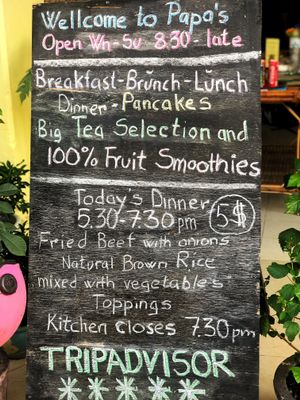 Wellcome to Papa's
Open Wh-Su 8.30- late
Breakfast-Brŭnch-Lŭnch
Dinner-Pancakes
Big Tea Selection and
100% Fruit Smoothies
Today's Dinner
5.30-7.30 pm 5$
Fried Beef with onions
Natural Brown Rice
mixed with vegetables
Toppings
Kitchen closes 7.30 pm
TRIPADVISOR